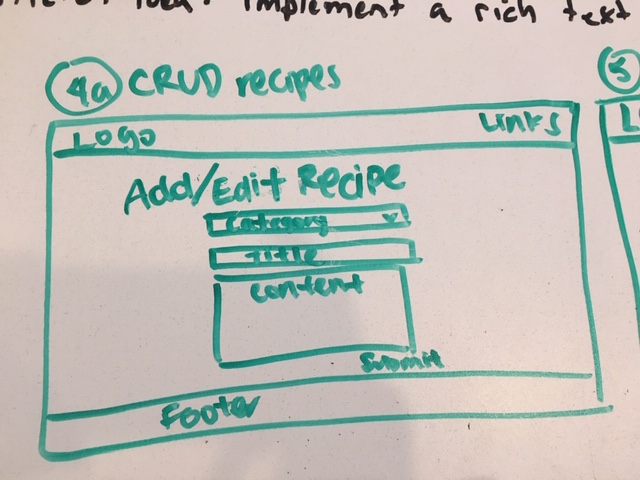 idea: implement a rich text
4a CRUD recipes
5
Logo Links
Add/Edit Recipe
Category
Title
Content
Submit
Footer